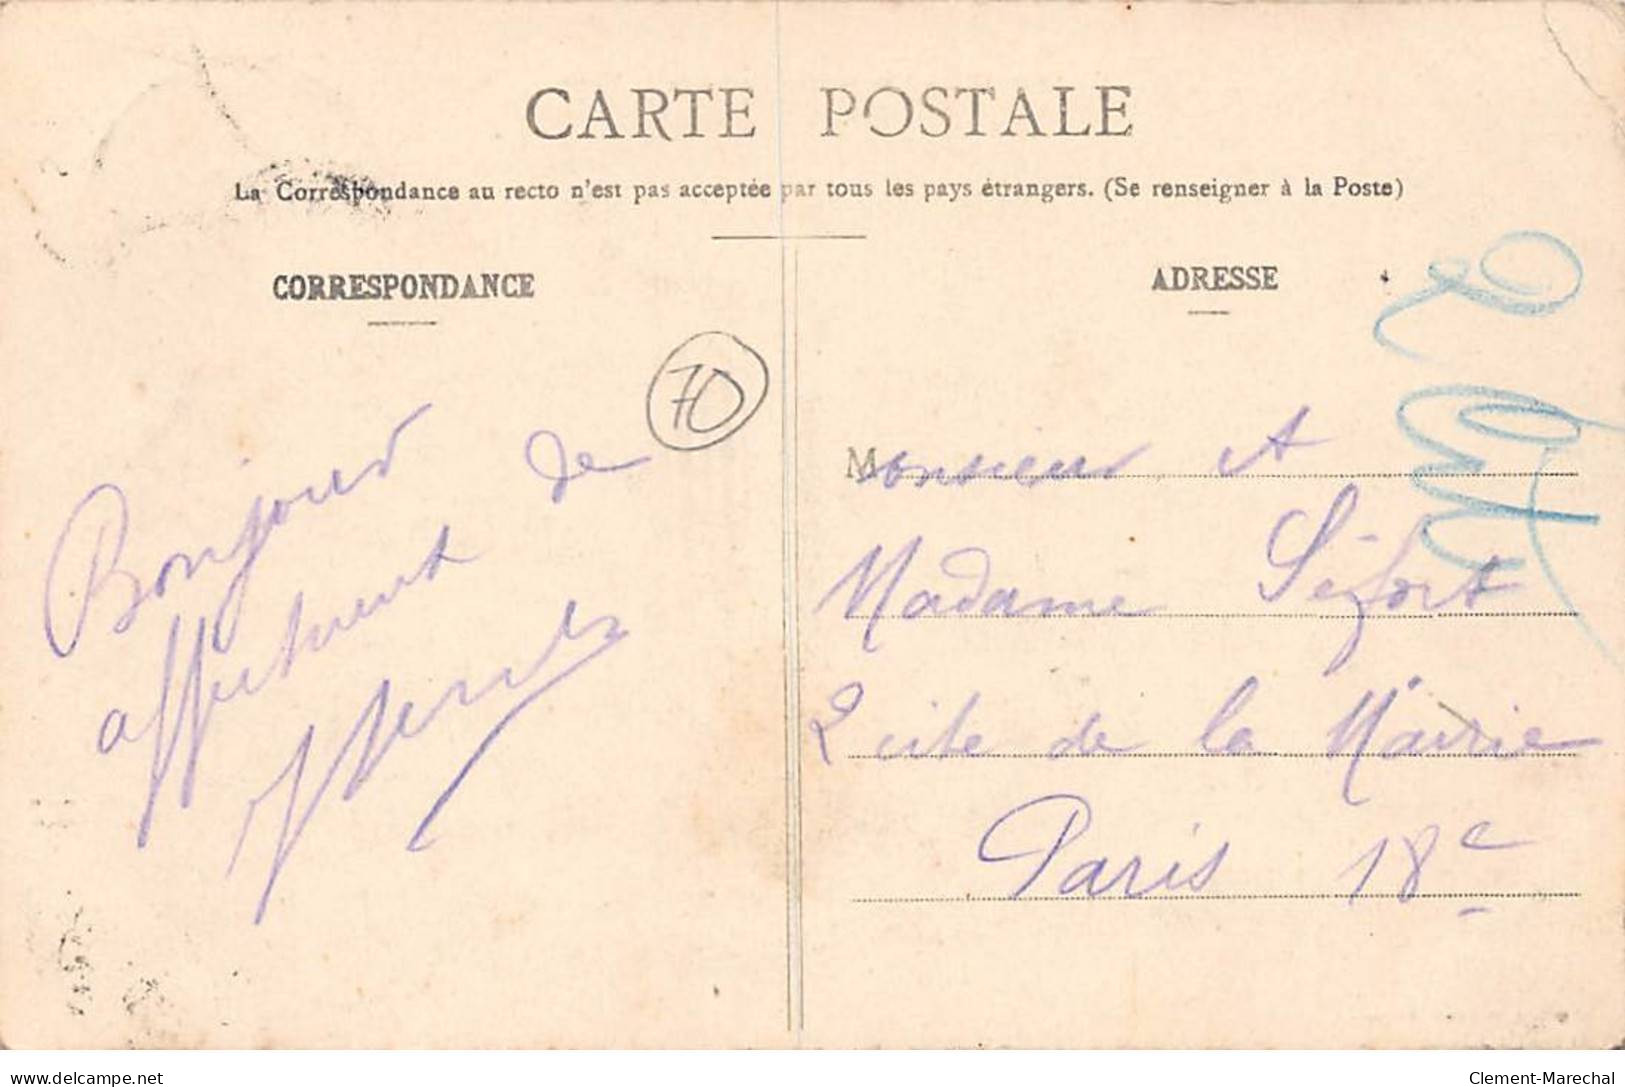 CARTE POSTALE
La Correspondance au recto n'est pas acceptée par tous les pays étrangers. (Se renseigner à la Poste)
CORRESPONDANCE
ADRESSE
70
Bonjour
affectueux de
Monsieur et
Madame
2 cité de la Mairie
Paris 18e
www.delcampe.net
Clement-Marechal